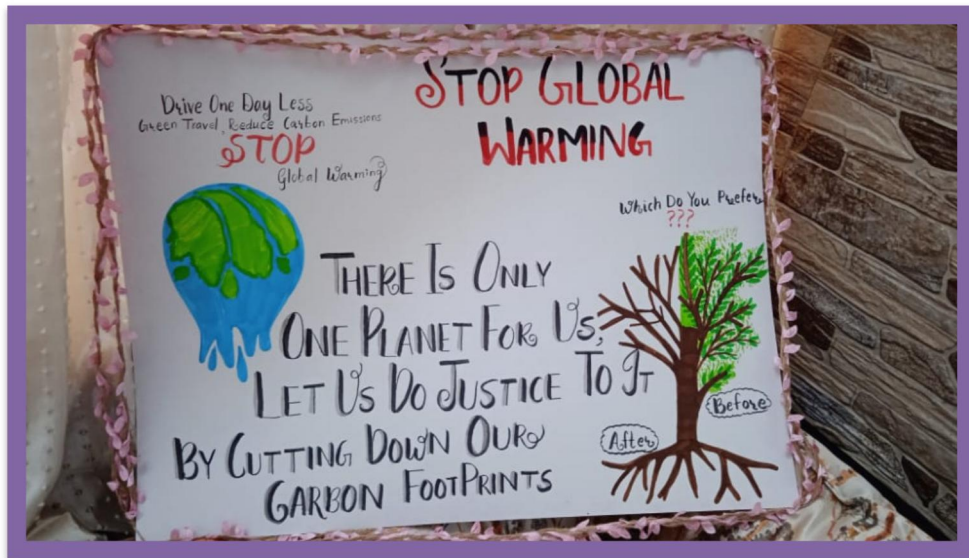 Drive One Day Less
Green Travel, Reduce Carbon Emissions
STOP
Global Warming
STOP GLOBAL
WARMING
Which Do You Prefer
???
THERE IS ONLY
ONE PLANET FOR US,
LET US DO JUSTICE TO IT
BY CUTTING DOWN OUR
CARBON FOOTPRINTS
Before
After